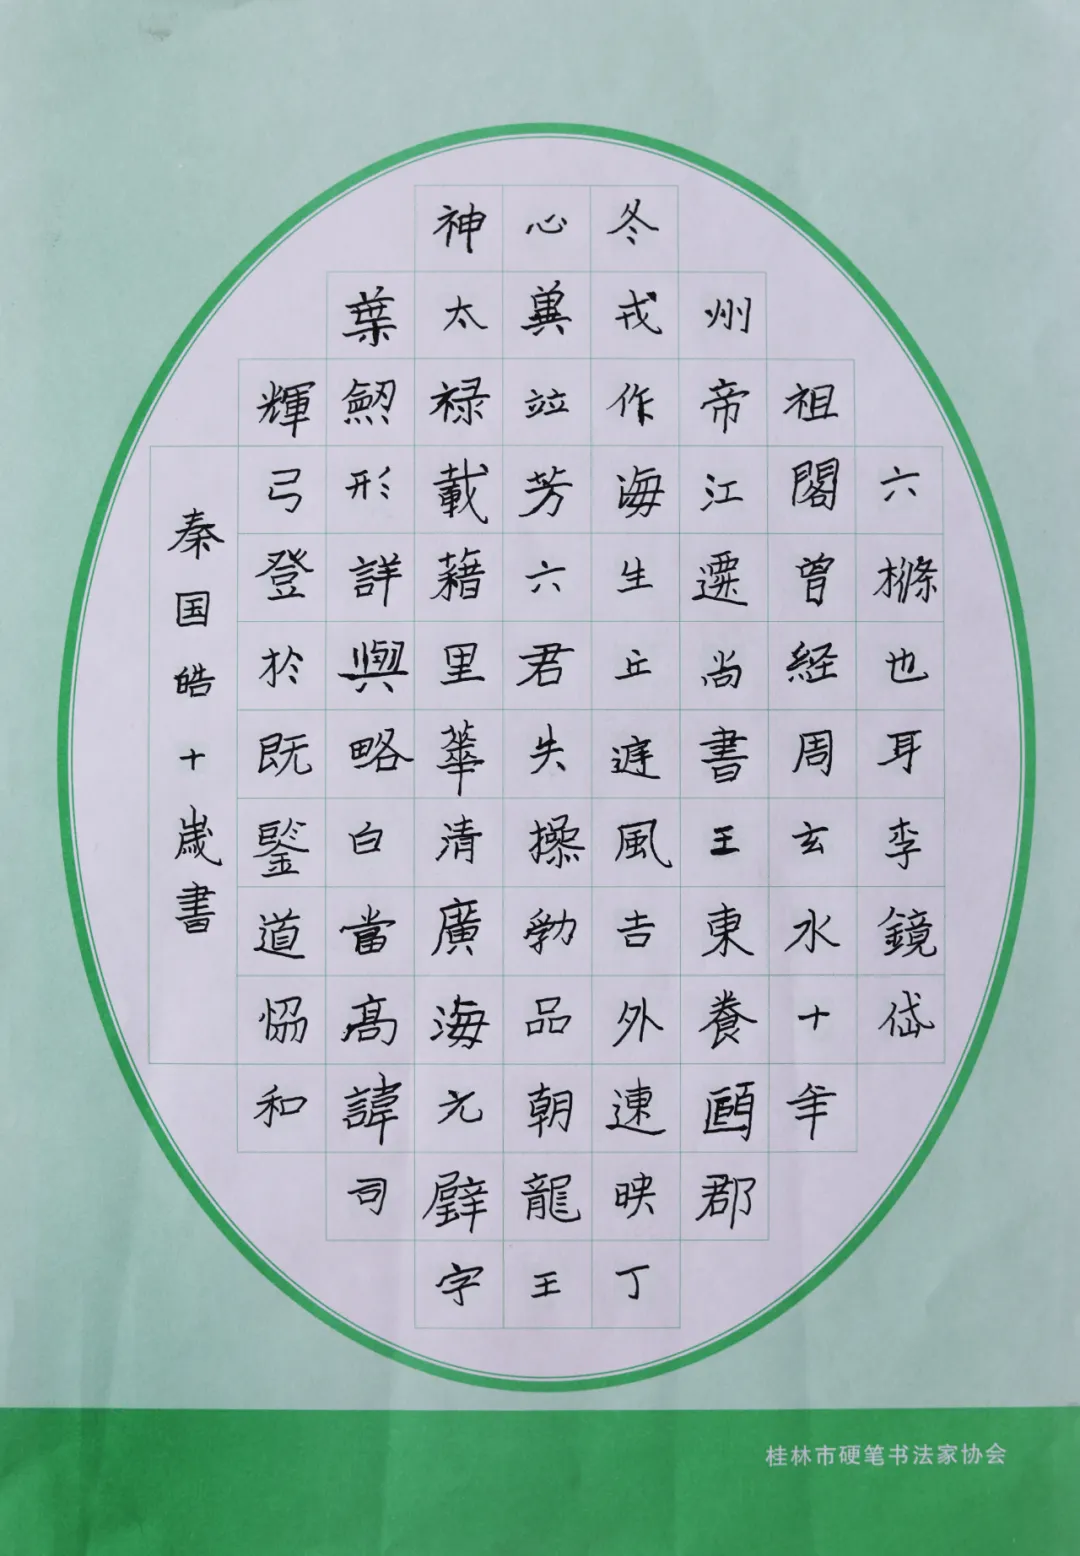 六也耳李鏡岱
祖閣曾経周玄水十年
州帝江遷尚書王東養郡
冬戎作海生丘風吉外連映丁
心竝芳六君失操勃品朝龍王
神太禄載藉里華清廣海字
葉形詳與略白當高諱司
輝弓登於既鑒道恊和
秦国皓十歲書
桂林市硬笔书法家协会